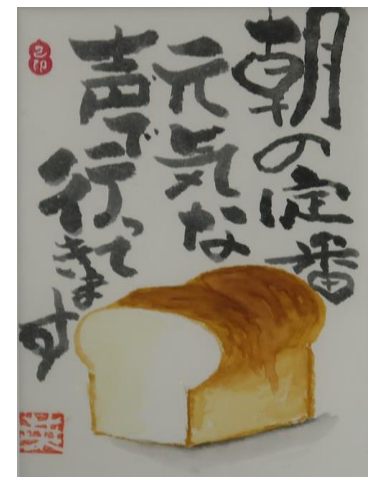 朝の定番
元気な
声で行ってきます